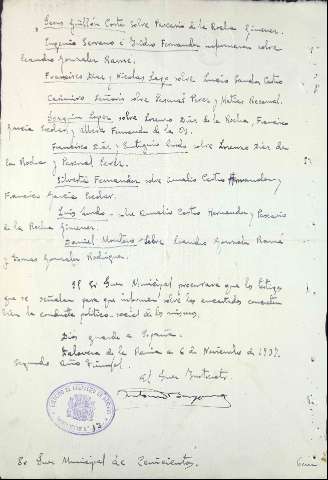 Jesus Guillén Corta sobre Pascasio de la Rocha Gimenez.
Eugenio Serrano e Isidro Fernandez informaran sobre
Leandro Gonzalez Ramé.
Francisco Diaz y Nicolas Lago sobre Lucio Sandos Castro
Casimiro Señoris sobre Pascual Perez y Mateo Recamal.
Joaquin Lopez sobre Lorenzo Dias de la Rocha, Francisco
Garcia Escobar y Alberto Fernandez de la O
Francisco Dias y Eutiquio Sordo sobre Lorenzo Dias de
la Rocha y Pascual Perez.
Silvestre Fernandez sobre Amalio Castro Hernandez y
Francisco Garcia Escobar.
Luis Sordo sobre Amalio Castro Hernandez y Pascasio
de la Rocha Gimenez.
Daniel Montero sobre Leandro Gonzalez Ramé
y Tomas Gonzalez Rodriguez.
El Sr Juez Municipal procurara que los testigos
que se señalan para que informen sobre los encartados concreten
bien la conducta politico-social de los mismos.
Dios guarde a España.
Talavera de la Reina a 6 de Noviembre de 1937.
Segundo Año Triunfal.
el Juez Instructor.
Sr Juez Municipal de Cenicientos.